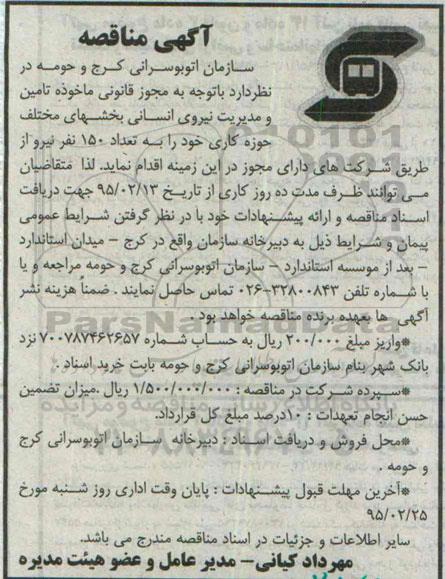 آگهی مناقصه
سازمان اتوبوسرانی کرج و حومه در
نظردارد باتوجه به مجوز قانونی ماخوذه تامین
و مدیریت نیروی انسانی بخشهای مختلف
حوزه کاری خود را به تعداد ۱۵۰ نفر نیرو از
طریق شرکت های دارای مجوز در این زمینه اقدام نماید. لذا متقاضیان
می توانند ظرف مدت ده روز کاری از تاریخ ۹۵/۰۲/۱۳ جهت دریافت
اسناد مناقصه و ارائه پیشنهادات خود با در نظر گرفتن شرایط عمومی
پیمان و شرایط ذیل به دبیرخانه سازمان واقع در کرج – میدان استاندارد
– بعد از موسسه استاندارد – سازمان اتوبوسرانی کرج و حومه مراجعه و یا
با شماره تلفن ۳۲۸۰۰۸۴۳–۰۲۶ تماس حاصل نمایند . ضمناً هزینه نشر
آگهی ها بعهده برنده مناقصه خواهد بود .
*واریز مبلغ ۲۰۰/۰۰۰ ریال به حساب شماره ۷۰۰۷۸۷۴۶۲۶۵۷ نزد
بانک شهر بنام سازمان اتوبوسرانی کرج و حومه بابت خرید اسناد .
*سپرده شرکت در مناقصه : ۱/۵۰۰/۰۰۰/۰۰۰ ریال .میزان تضمین
حسن انجام تعهدات : ۱۰درصد مبلغ کل قرارداد.
*محل فروش و دریافت اسناد : دبیرخانه سازمان اتوبوسرانی کرج
و حومه .
*آخرین مهلت قبول پیشنهادات : پایان وقت اداری روز شنبه مورخ
۹۵/۰۲/۲۵
سایر اطلاعات و جزئیات در اسناد مناقصه مندرج می باشد.
مهرداد کیانی – مدیر عامل و عضو هیئت مدیره
ParsNamadData